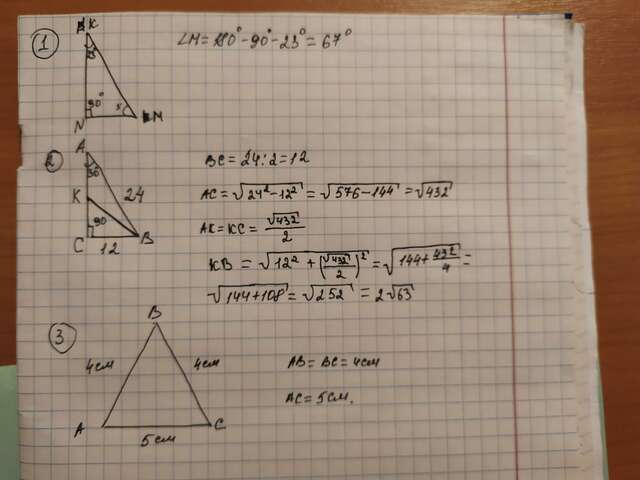 1
K
∠M = 180° - 90° - 23° = 67°
23
90°
N
M
2
A
30
K
24
90
C
12
B
BC = 24 : 2 = 12
AC = √(24² - 12²) = √(576 - 144) = √432
AK = KC = √432/2
KB = √(12² + (√432/2)²) = √(144 + 432/4) =
√(144 + 108) = √252 = 2√63
3
B
4 см
4 см
A
C
5 см
AB = BC = 4 см
AC = 5 см.